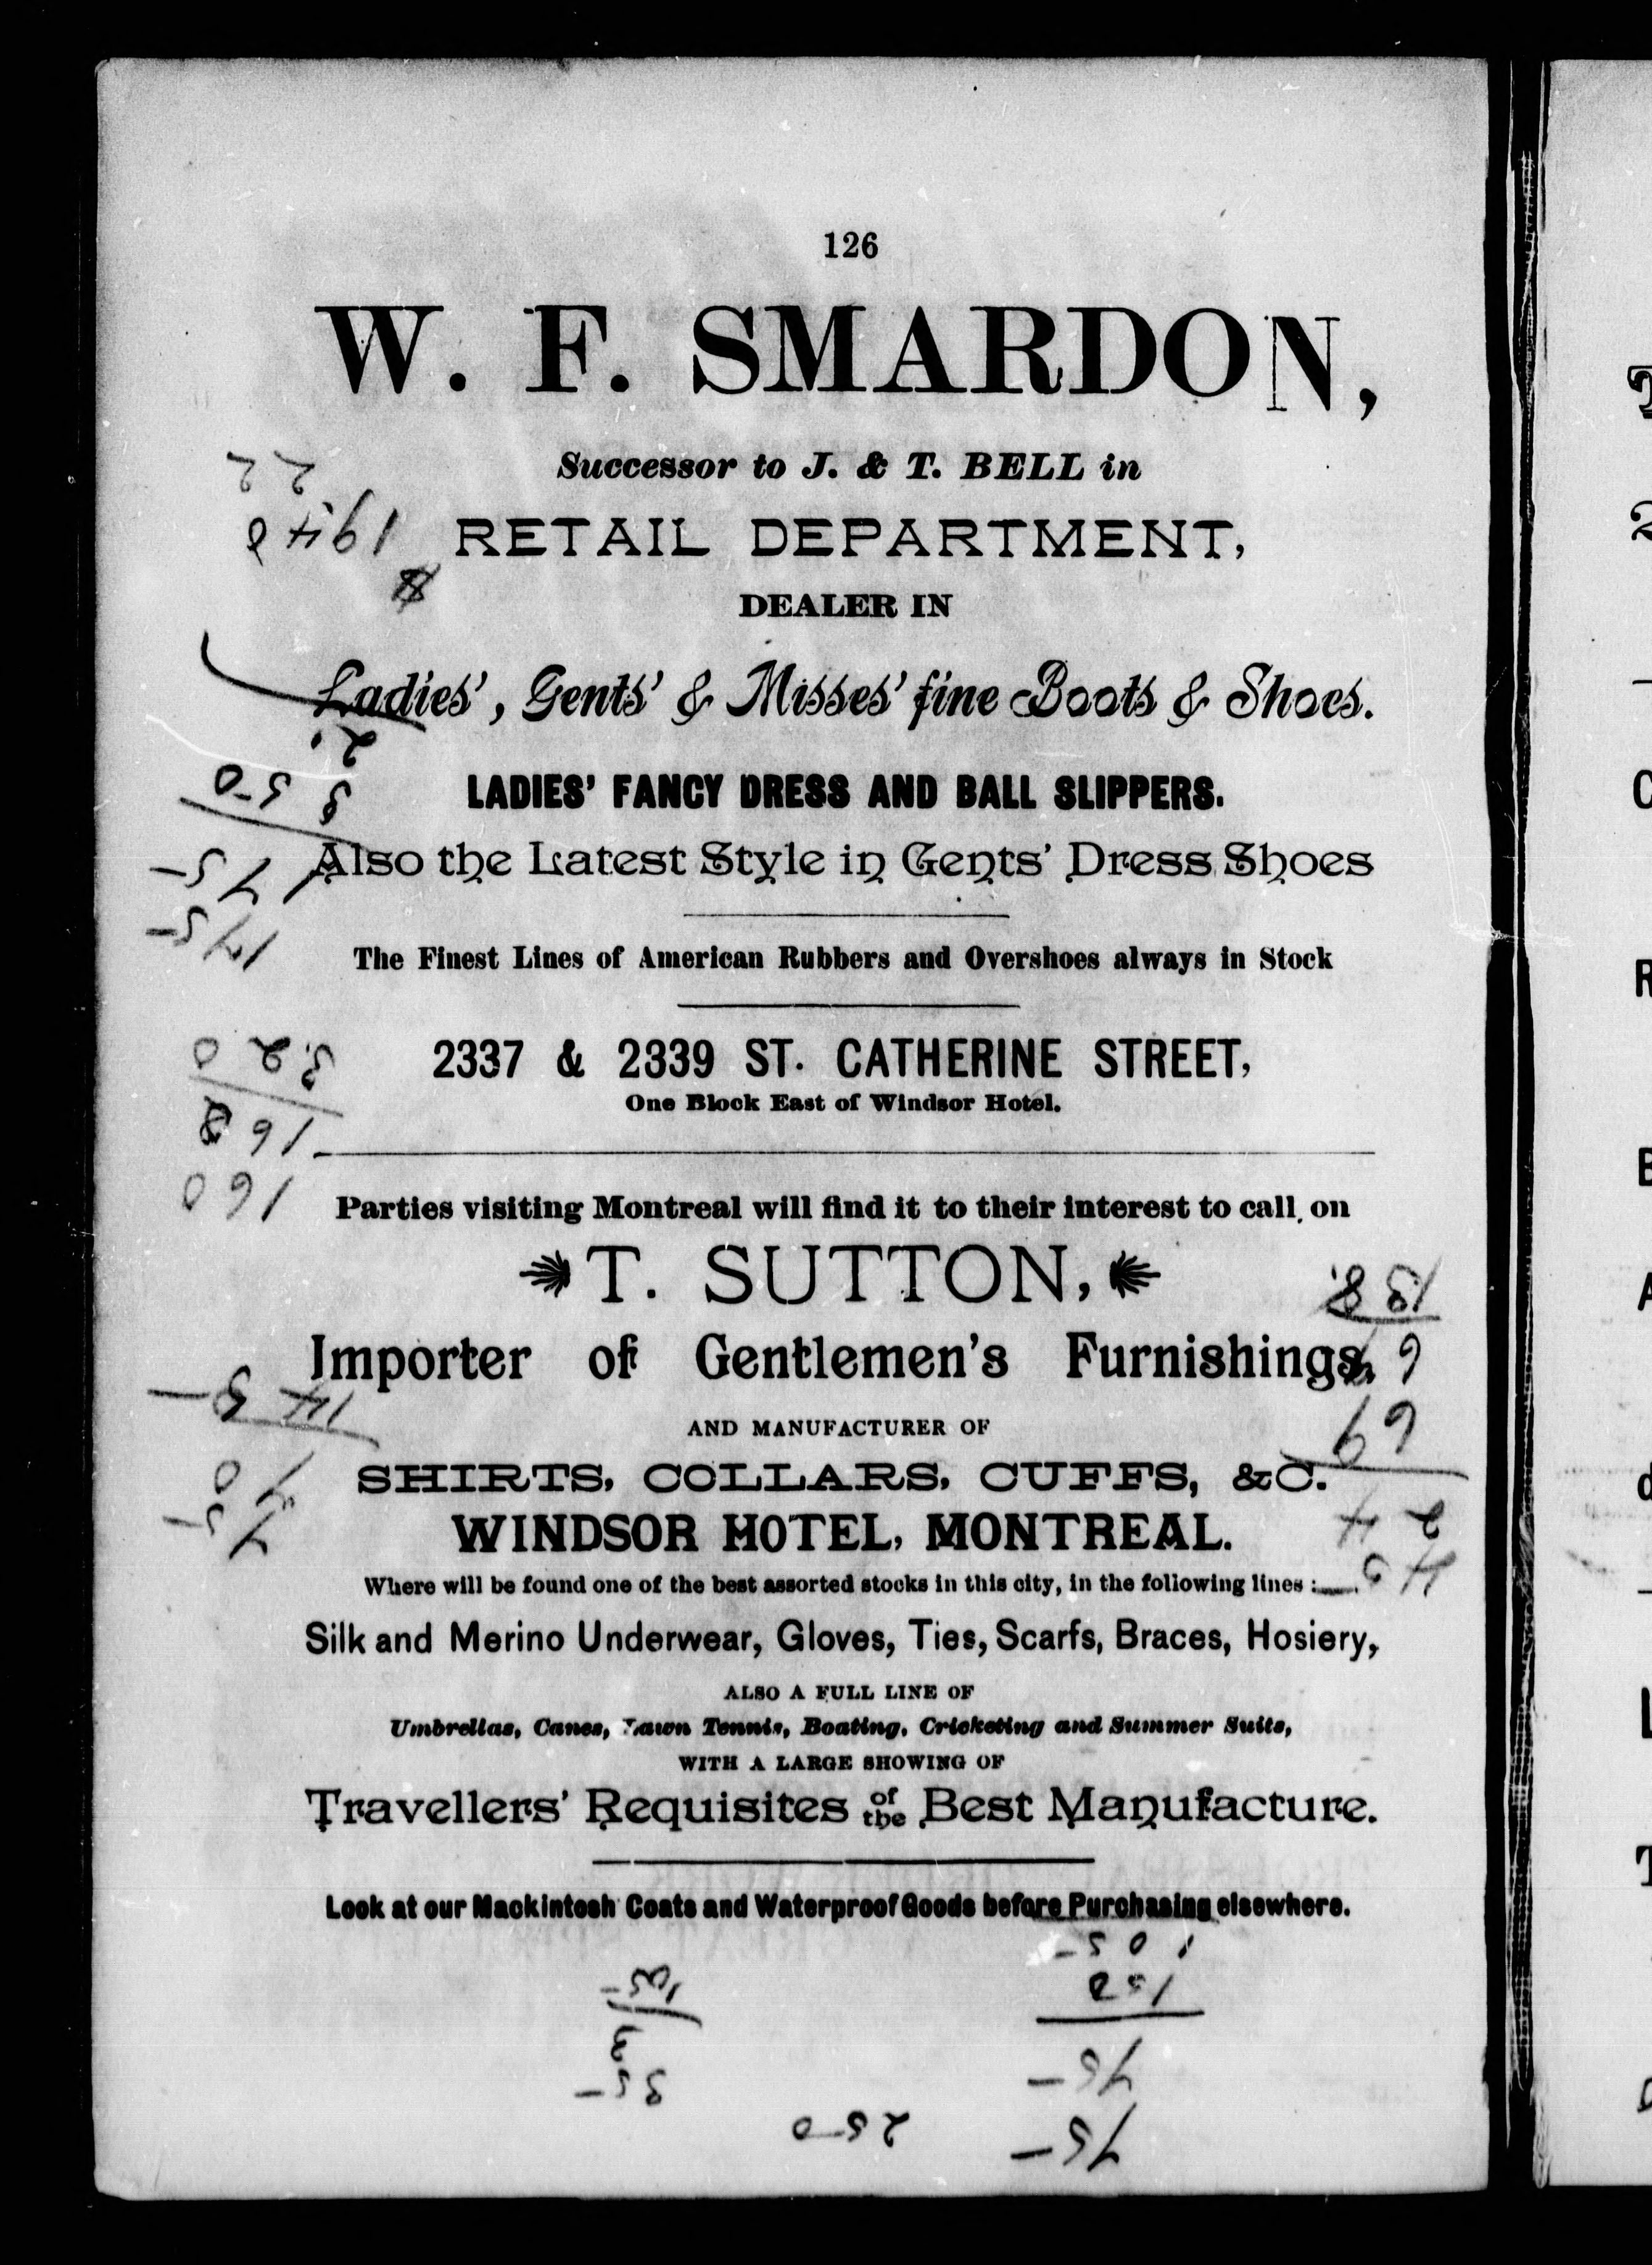 126
W. F. SMARDON,
Successor to J. & T. BELL in
RETAIL DEPARTMENT,
DEALER IN
Ladies', Gents' & Misses' fine Boots & Shoes.
LADIES' FANCY DRESS AND BALL SLIPPERS.
Also the Latest Style in Gents' Dress Shoes
The Finest Lines of American Rubbers and Overshoes always in Stock
2337 & 2339 ST. CATHERINE STREET,
One Block East of Windsor Hotel.
Parties visiting Montreal will find it to their interest to call on
T. SUTTON,
Importer of Gentlemen's Furnishings,
AND MANUFACTURER OF
SHIRTS, COLLARS, CUFFS, &C.
WINDSOR HOTEL, MONTREAL.
Where will be found one of the best assorted stocks in this city, in the following lines :—
Silk and Merino Underwear, Gloves, Ties, Scarfs, Braces, Hosiery,
ALSO A FULL LINE OF
Umbrellas, Canes, Lawn Tennis, Boating, Cricketing and Summer Suits,
WITH A LARGE SHOWING OF
Travellers' Requisites of the Best Manufacture.
Look at our Mackintosh Coats and Waterproof Goods before Purchasing elsewhere.
105
150
35
75
250
75